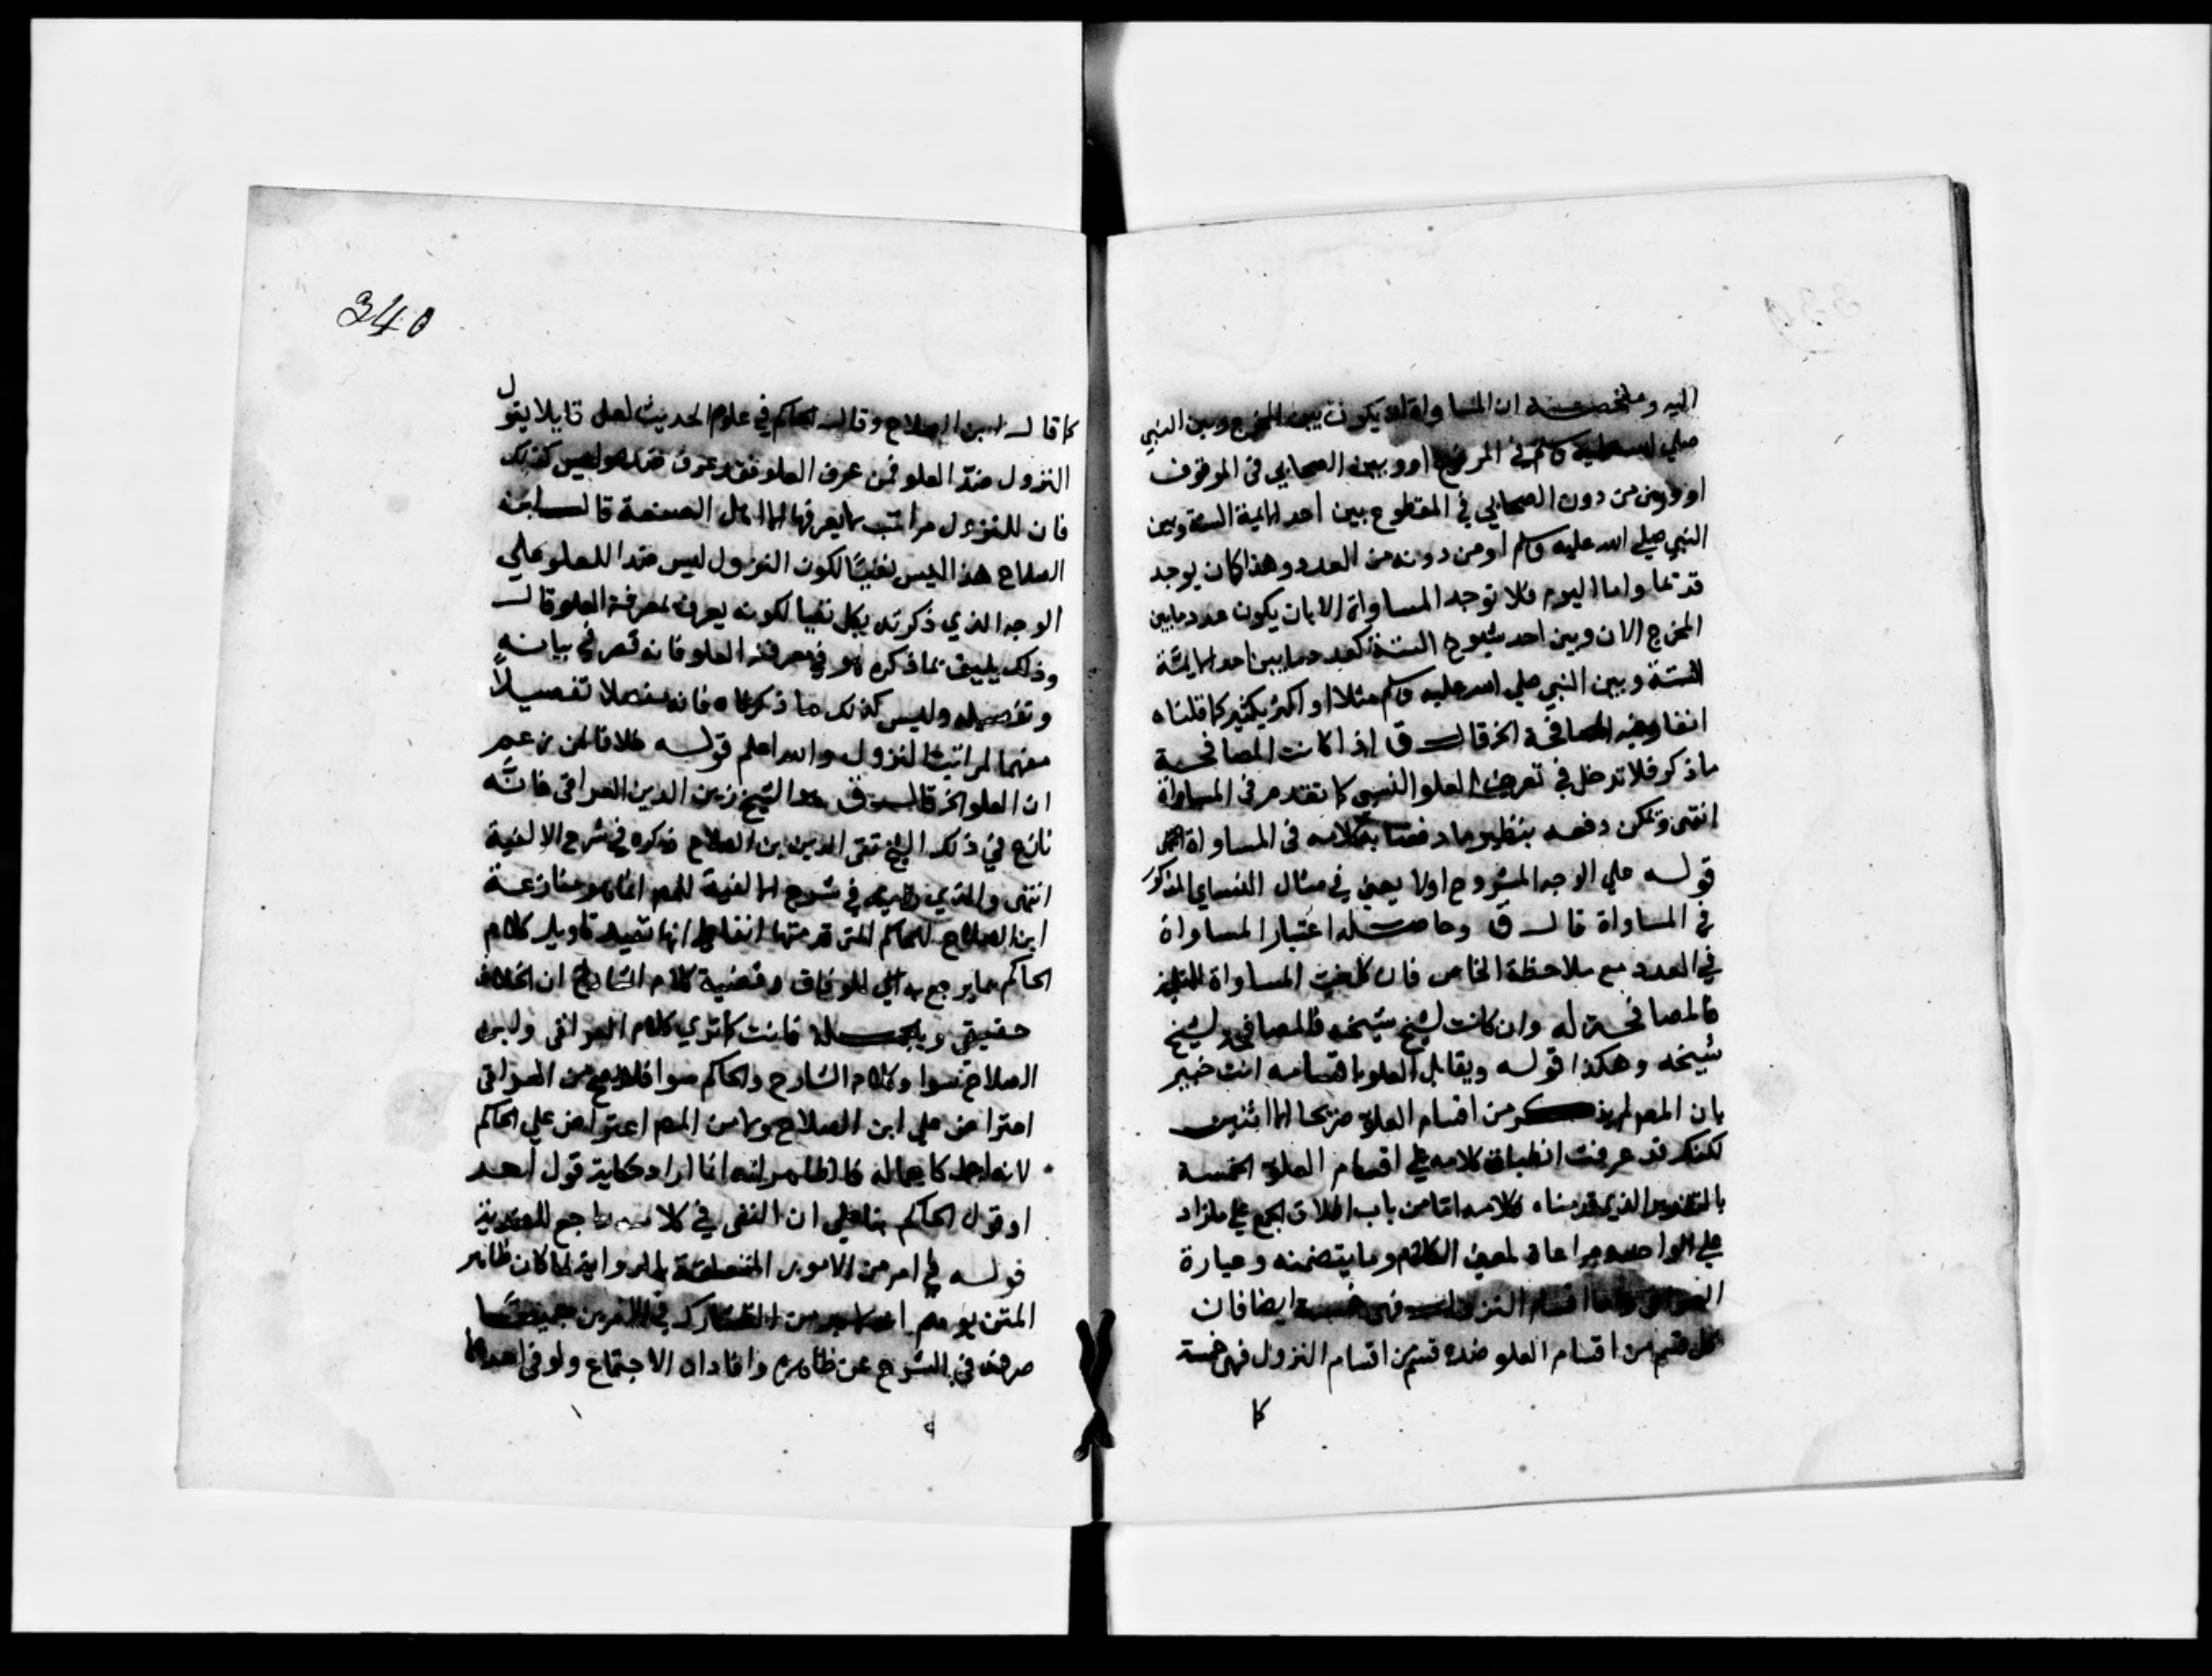 اليه وملخصه ان المساواة ان يكون بين المخرج وبين النبي
صلي الله عليه وسلم في المرفوع او وبين الصحابي في الموقوف
او وبين من دون الصحابي في المقطوع بين احد الايمة الستة وبين
النبي صلي الله عليه وسلم او من دونه من العدد وهذا كان يوجد
قديما واما اليوم فلا توجد المساواة الا بان يكون عدد ما بين
المخرج الان وبين احد شيوخ الستة كعدد ما بين احد الايمة
الستة وبين النبي صلي الله عليه وسلم مثلا او اكثر بكثير كما قلناه
انفا وفيه المصافحة الخ قال ق اذا كانت المصافحة
ما ذكر فلا تدخل في تعريف العلو النسبي كما تقدم في المساواة
انتهى ويمكن دفعه بنظير ما دفعنا به كلامه في المساواة انتهى
قوله علي الوجه المشروح اولا يعني في مثال النساي المذكور
في المساواة قال ق وحاصله اعتبار المساواة
في العدد مع ملاحظة الخاص فان كانت المساواة للتلميذ
فالمصافحة له وان كانت لشيخ شيخه فالمصافحة لشيخ
شيخه وهكذا قوله ويقابل العلو باقسامه انت خبير
بان المص لم يذكر من اقسام العلو صريحا الا اثنين
لكنك قد عرفت انطباق كلامه علي اقسام العلو الخمسة
بالتقدير الذي قدمناه فكلامه اما من باب اطلاق الجمع علي ما زاد
علي الواحد ومراعاة لمعني الكلام وما يتضمنه وعبارة
العراقي واما اقسام النزول فهي خمسة ايضا فان
كل قسم من اقسام العلو ضده قسم من اقسام النزول فهي خمسة
كا
340
كما قال ابن الصلاح وقال الحاكم في علوم الحديث لعل قايلا يقول
النزول ضد العلو فمن عرف العلو فقد عرف ضده وليس كذلك
فان للنزول مراتب لا يعرفها الا اهل الصنعة قال ابن
الصلاح هذا ليس نفيا لكون النزول ليس ضدا للعلو علي
الوجه الذي ذكرته بل نفيا لكونه يعرف بمعرفة العلو قال
وذلك يليق بما ذكره هو في معرفة العلو فانه قصر في بيانه
وتفصيله وليس كذلك ما ذكرناه فانه مفصل تفصيلا
مفهما لمراتب النزول والله اعلم قوله خلافا لمن زعم
ان العلو الخ قال ق هو الشيخ زين الدين العراقي فانه
نازع في ذلك الشيخ تقي الدين ابن الصلاح فذكره في شرح الالفية
انتهى والذي رايته في شرح الالفية للمص انما هو منازعة
ابن الصلاح للحاكم التي قدمتها انفا علي انها تفيد تاويل كلام
الحاكم بما يرجع به الي الوفاق وقضية كلام الشارح ان الخلاف
حقيقي وبالجملة فانت كما تري كلام العراقي وابن
الصلاح سوا وكلام الشارح والحاكم سوا فلا يصح من العراقي
اعتراض علي ابن الصلاح ولا من المص اعتراض علي الحاكم
لانه احل كما بحاله فالظاهر انه انما اراد حكاية قول احد
او قول الحاكم بنا علي ان النفي في كلامه راجع للضدية
قوله في امر من الامور المتعلقة بالرواية لما كان ظاهر
المتن يوهم انه لا بد من التشارك في الامرين جميعا
صرفه في الشرح عن ظاهره وافاد ان الاجتماع ولو في احدها